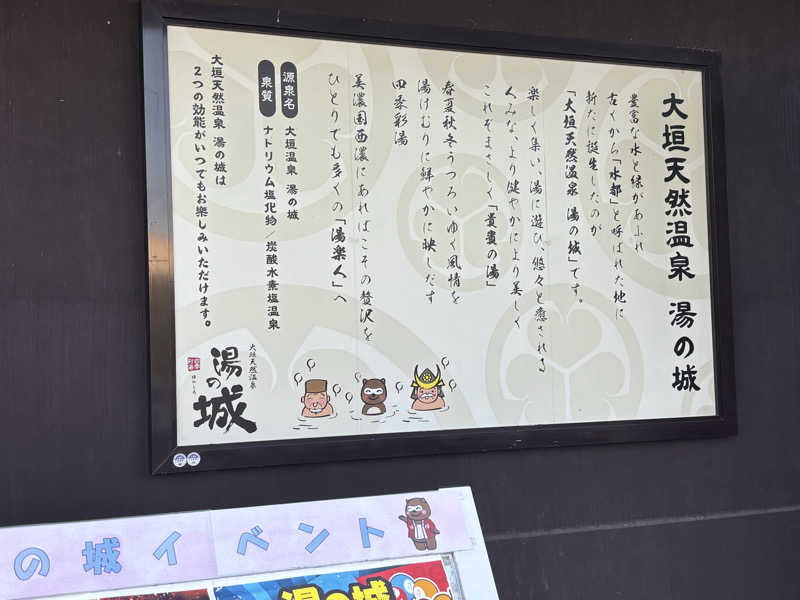 大垣天然温泉 湯の城
豊富な水と緑があふれ
古くから「水都」と呼ばれた地に
新たに誕生したのが
「大垣天然温泉 湯の城」です。
楽しく集い、湯に遊び、悠々と癒される
人みな、より健やかにより美しく
これぞまさしく「貴賓の湯」
春夏秋冬うつろいゆく風情を
湯けむりに鮮やかに映しだす
四季彩湯
美濃国西濃にあればこその贅沢を
ひとりでも多くの「湯楽人」へ
源泉名 大垣温泉 湯の城
泉質 ナトリウム塩化物/炭酸水素塩温泉
大垣天然温泉 湯の城は
2つの効能がいつでもお楽しみいただけます。
大垣天然温泉
湯の城
の城イベント
湯の城